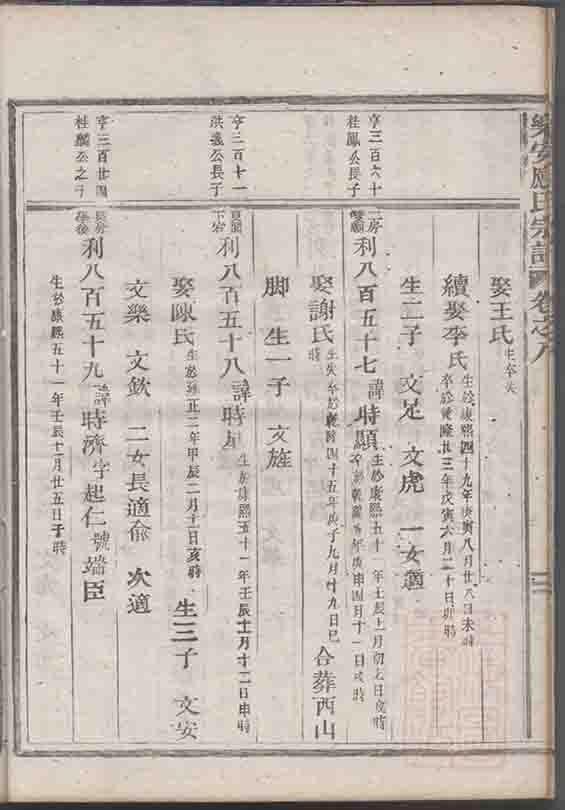 樂安應氏宗譜 卷之八
娶王氏 生卒失
續娶李氏 生於康熙四十九年庚寅八月廿八日未時 卒於乾隆廿三年戊寅六月二十日卯時
生二子 文足 文虎 一女適
亨三百六十 桂鳳公長子
二房 利八百五十七 諱時顯 生於康熙五十一年壬辰七月初七日戌時 卒於乾隆五年庚申四月十一日戌時
娶謝氏 生失卒於乾隆四十五年庚子九月十九日巳時 合葬西山
脚 生一子 文旌
亨三百十一 洪邊公長子
利八百五十八 諱時星 生於康熙五十一年壬辰十月十二日申時
娶陳氏 生於雍正二年甲辰二月十二日亥時 生三子 文安
文樂 文欽 二女長適俞 次適
亨三百廿四 桂麟公之子
長房 學後 利八百五十九 諱時濟 字起仁 號端臣
生於康熙五十一年壬辰十二月廿五日子時